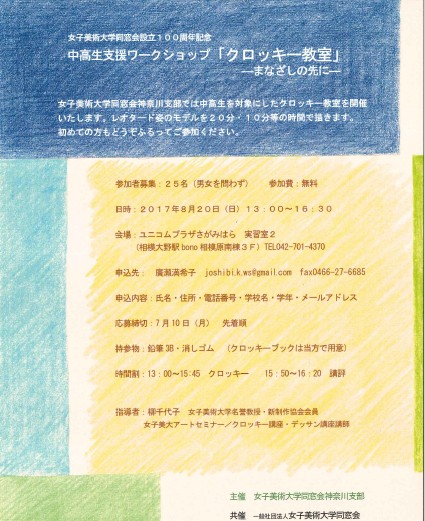 女子美術大学同窓会設立１００周年記念
中高生支援ワークショップ「クロッキー教室」
―まなざしの先に―
女子美術大学同窓会神奈川支部では中高生を対象にしたクロッキー教室を開催
いたします。レオタード姿のモデルを２０分・１０分等の時間で描きます。
初めての方もどうぞふるってご参加ください。
参加者募集：２５名（男女を問わず）　参加費：無料
日時：２０１７年８月２０日（日）１３：００～１６：３０
会場：ユニコムプラザさがみはら　実習室２
（相模大野駅 bono 相模原南棟３Ｆ）TEL042-701-4370
申込先：　廣瀬満希子　joshibi.k.ws@gmail.com　fax0466-27-6685
申込内容：氏名・住所・電話番号・学校名・学年・メールアドレス
応募締切：７月１０日（月）　先着順
持参物：鉛筆３B・消しゴム　（クロッキーブックは当方で用意）
時間割：13：00～15:45　クロッキー　　15：50～16：20　講評
指導者：柳千代子　女子美術大学名誉教授・新制作協会会員
女子美大アートセミナー／クロッキー講座・デッサン講座講師
主催　女子美術大学同窓会神奈川支部
共催　一般社団法人女子美術大学同窓会